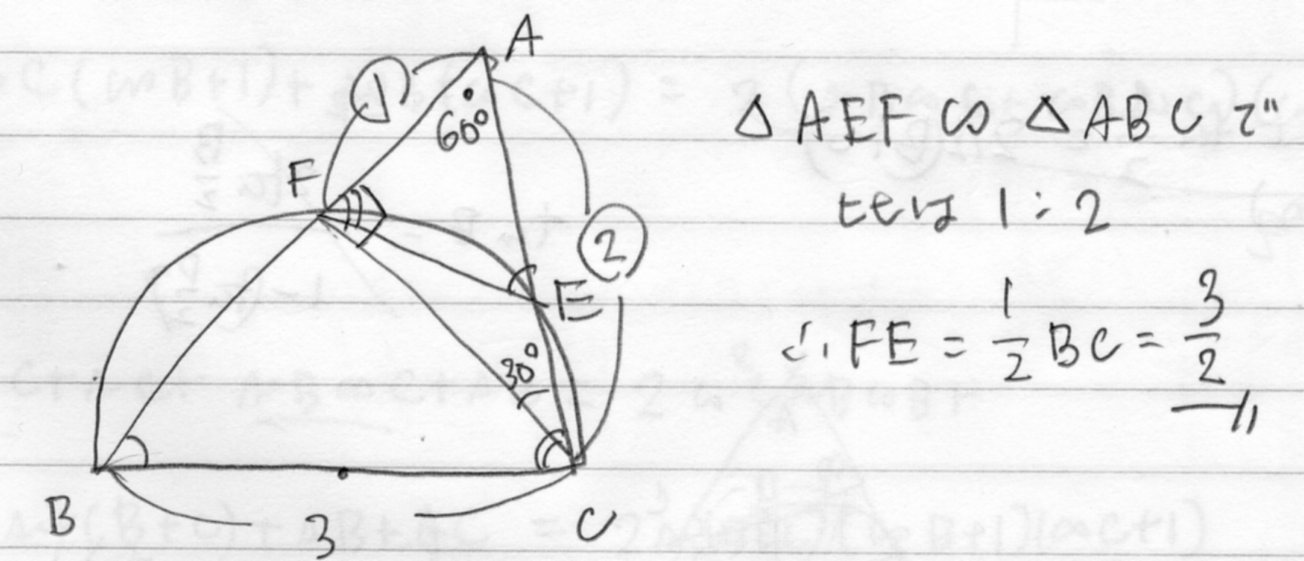 A
①
60°
F
②
E
30°
B
3
C
△AEF∽△ABCで
比は1:2
∴FE=\frac{1}{2}BC=\frac{3}{2}